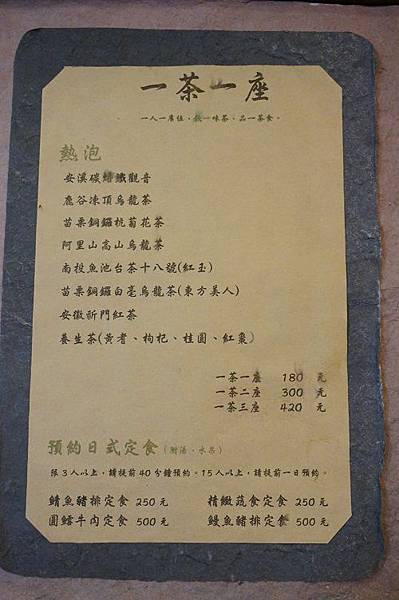 一茶一座
一人一席位、飲一味茶、品一茶食。
熱泡
安溪碳焙鐵觀音
鹿谷凍頂烏龍茶
苗栗銅鑼杭菊花茶
阿里山高山烏龍茶
南投魚池台茶十八號(紅玉)
苗栗銅鑼白毫烏龍茶(東方美人)
安徽祈門紅茶
養生茶(黃耆、枸杞、桂圓、紅棗)
一茶一座 180 元
一茶二座 300 元
一茶三座 420 元
預約日式定食(附湯、水果)
限3人以上,請提前40分鐘預約。15人以上,請提前一日預約。
鯖魚豬排定食 250元 精緻蔬食定食 250元
圓鱈牛肉定食 500元 鰻魚豬排定食 500元